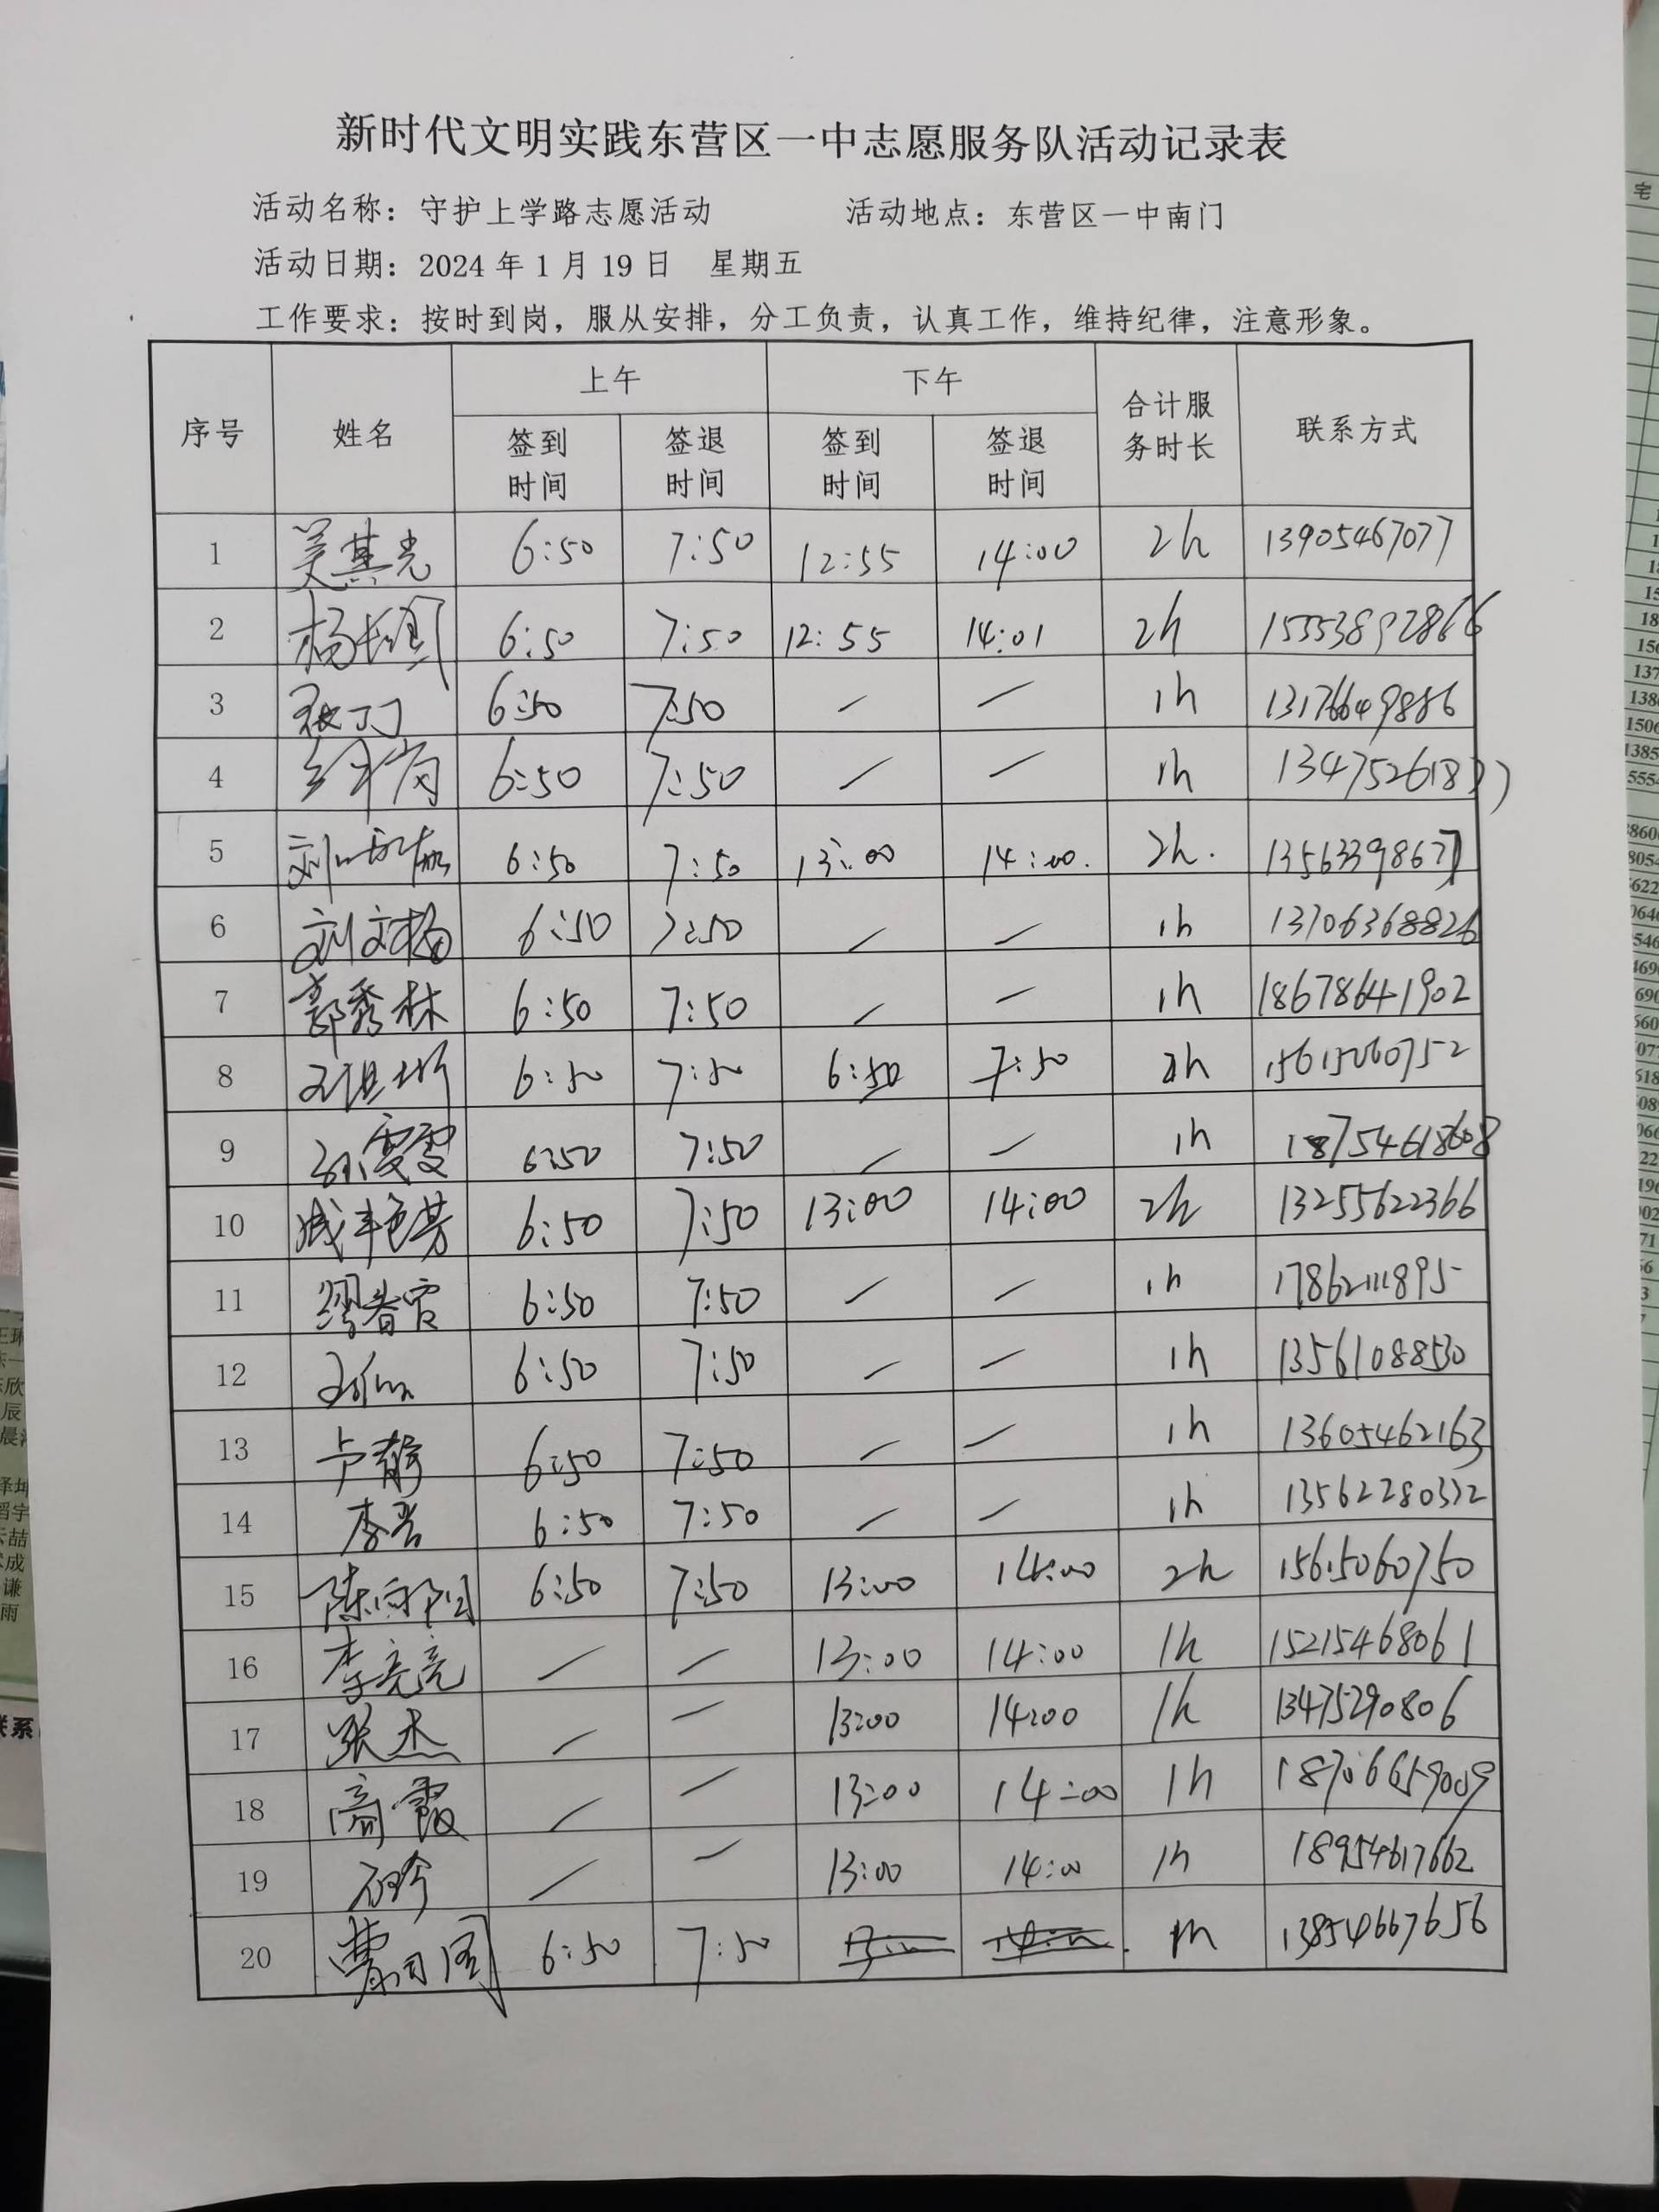 新时代文明实践东营区一中志愿服务队活动记录表
活动名称：守护上学路志愿活动 活动地点：东营区一中南门
活动日期：2024 年 1 月 19 日 星期五
工作要求：按时到岗，服从安排，分工负责，认真工作，维持纪律，注意形象。
序号 姓名 上午 下午 合计服务时长 联系方式
签到时间 签退时间 签到时间 签退时间
1 吴其光 6:50 7:50 12:55 14:00 2h 13905467077
2 6:50 7:50 12:55 14:01 2h 15553892866
3 6:50 7:50 / / 1h 13176649886
4 6:50 7:50 / / 1h
5 6:50 7:50 13:00 14:00. 2h. 13563398671
6 刘文杨 6:50 7:50 / / 1h 13706368826
7 郭秀林 6:50 7:50 / / 1h 18678641902
8 6:50 7:50 6:50 7:50 2h 15615060752
9 孙雯雯 6:50 7:50 / / 1h 18754618608
10 6:50 7:50 13:00 14:00 2h 13255622366
11 缪春霞 6:50 7:50 / / 1h 17862111895
12 6:50 7:50 / / 1h 13561088530
13 卢静 6:50 7:50 / / 1h 13605462163
14 李岩 6:50 7:50 / / 1h 13562280332
15 陈向阳 6:50 7:50 13:00 14:00 2h 15615060750
16 李亮亮 / / 13:00 14:00 1h 15215468061
17 张杰 / / 13:00 14:00 1h 13475290806
18 商霞 / / 13:00 14:00 1h 18706659009
19 石珍 / / 13:00 14:00 1h 18954617662
20 曹同国 6:50 7:50 1h 13854667656